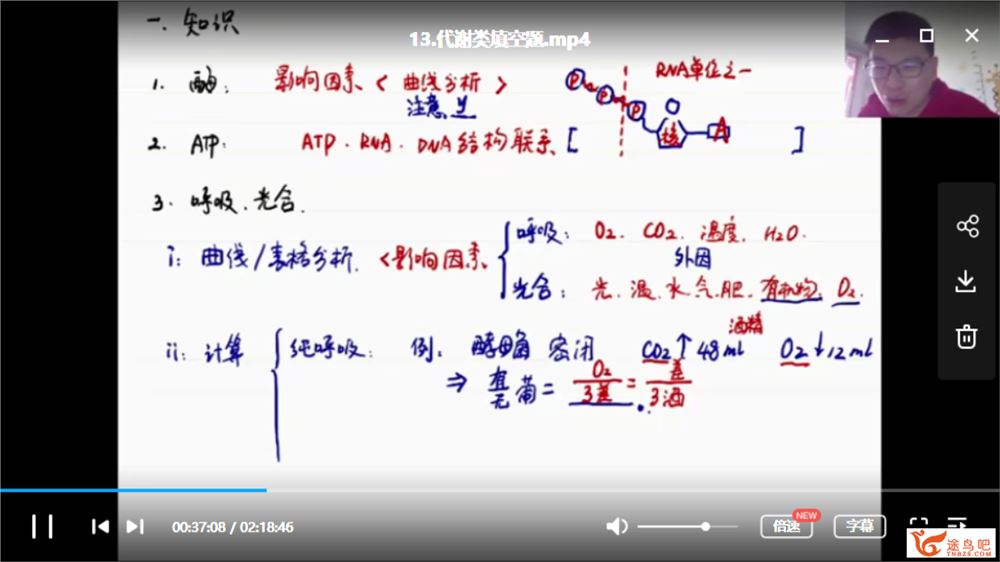 一. 知识
13.代谢类填空题.mp4
1. 酶: 影响因素 < 曲线分析 >
注意
RNA单位之一
P P P 核 A
2. ATP: ATP. RNA. DNA结构联系 [ ]
3. 呼吸. 光合.
i: 曲线/表格分析. <影响因素
呼吸: O2. CO2. 温度. H2O.
外因
光合: 光. 温. 水. 气. 肥. 有机物. O2.
ii: 计算
纯呼吸: 例. 酵母菌 密闭 CO2↑48ml O2↓12ml
酒精
⇒ 有/无 葡 = O2/3差 = 差/3酒
00:37:08 / 02:18:46
倍速
NEW
字幕
途鸟吧
TNBZS.COM